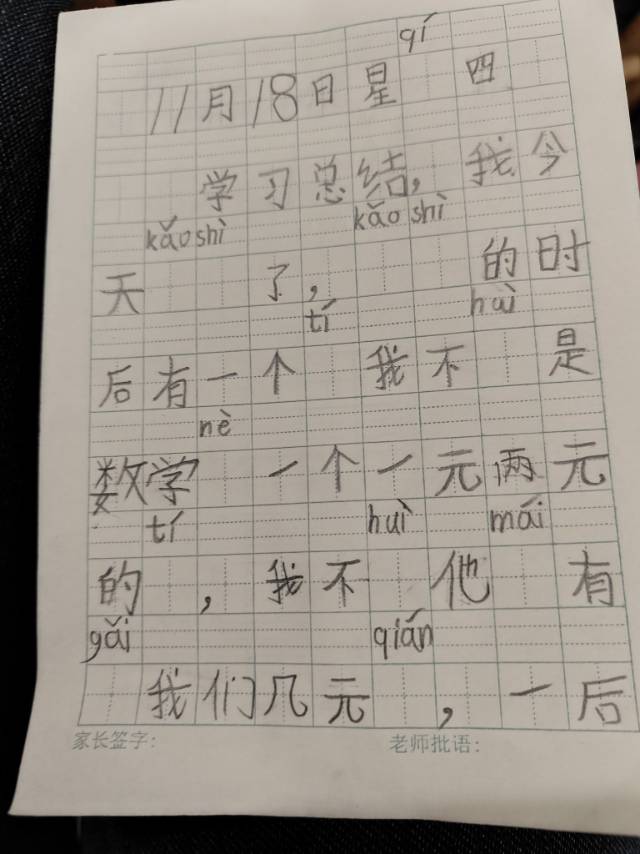 qí
11月18日星 四
学习总结，我今
kǎo shì kǎo shì
天 了， 的时
tí huì
后有一个 我不 是
nè
数学 一个一元两元
tí huì mái
的 ，我不 他 有
gǎi qián
我们几元 ，一后
家长签字： 老师批语：